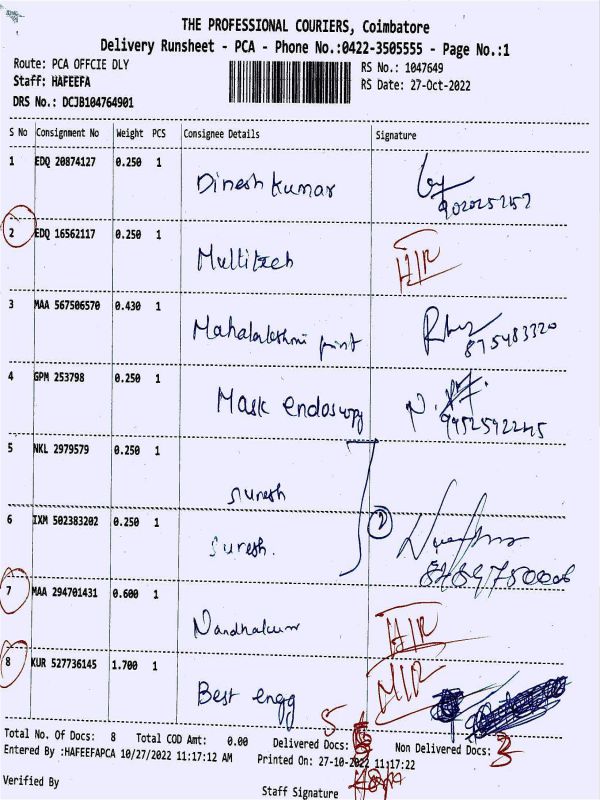 THE PROFESSIONAL COURIERS, Coimbatore
Delivery Runsheet - PCA - Phone No.:0422-3505555 - Page No.:1
Route: PCA OFFCIE DLY RS No.: 1047649
Staff: HAFEEFA RS Date: 27-Oct-2022
DRS No.: DCJB104764901
S No Consignment No Weight PCS Consignee Details Signature
1 EDQ 20874127 0.250 1 Dinesh kumar
2 EDQ 16562117 0.250 1 Multitech
3 MAA 567506570 0.430 1 Mahalakshmi print
875483320
4 GPM 253798 0.250 1 Mask endoscopy
5 NKL 2979579 0.250 1 suresh
6 IXM 502383202 0.250 1 suresh. 2
7 MAA 294701431 0.600 1 Nandhakumr
8 KUR 527736145 1.700 1 Best engg
Total No. Of Docs: 8 Total COD Amt: 0.00 Delivered Docs: 5 Non Delivered Docs: 3
Entered By :HAFEEFAPCA 10/27/2022 11:17:12 AM Printed On: 27-10-2022 11:17:22
Verified By Staff Signature